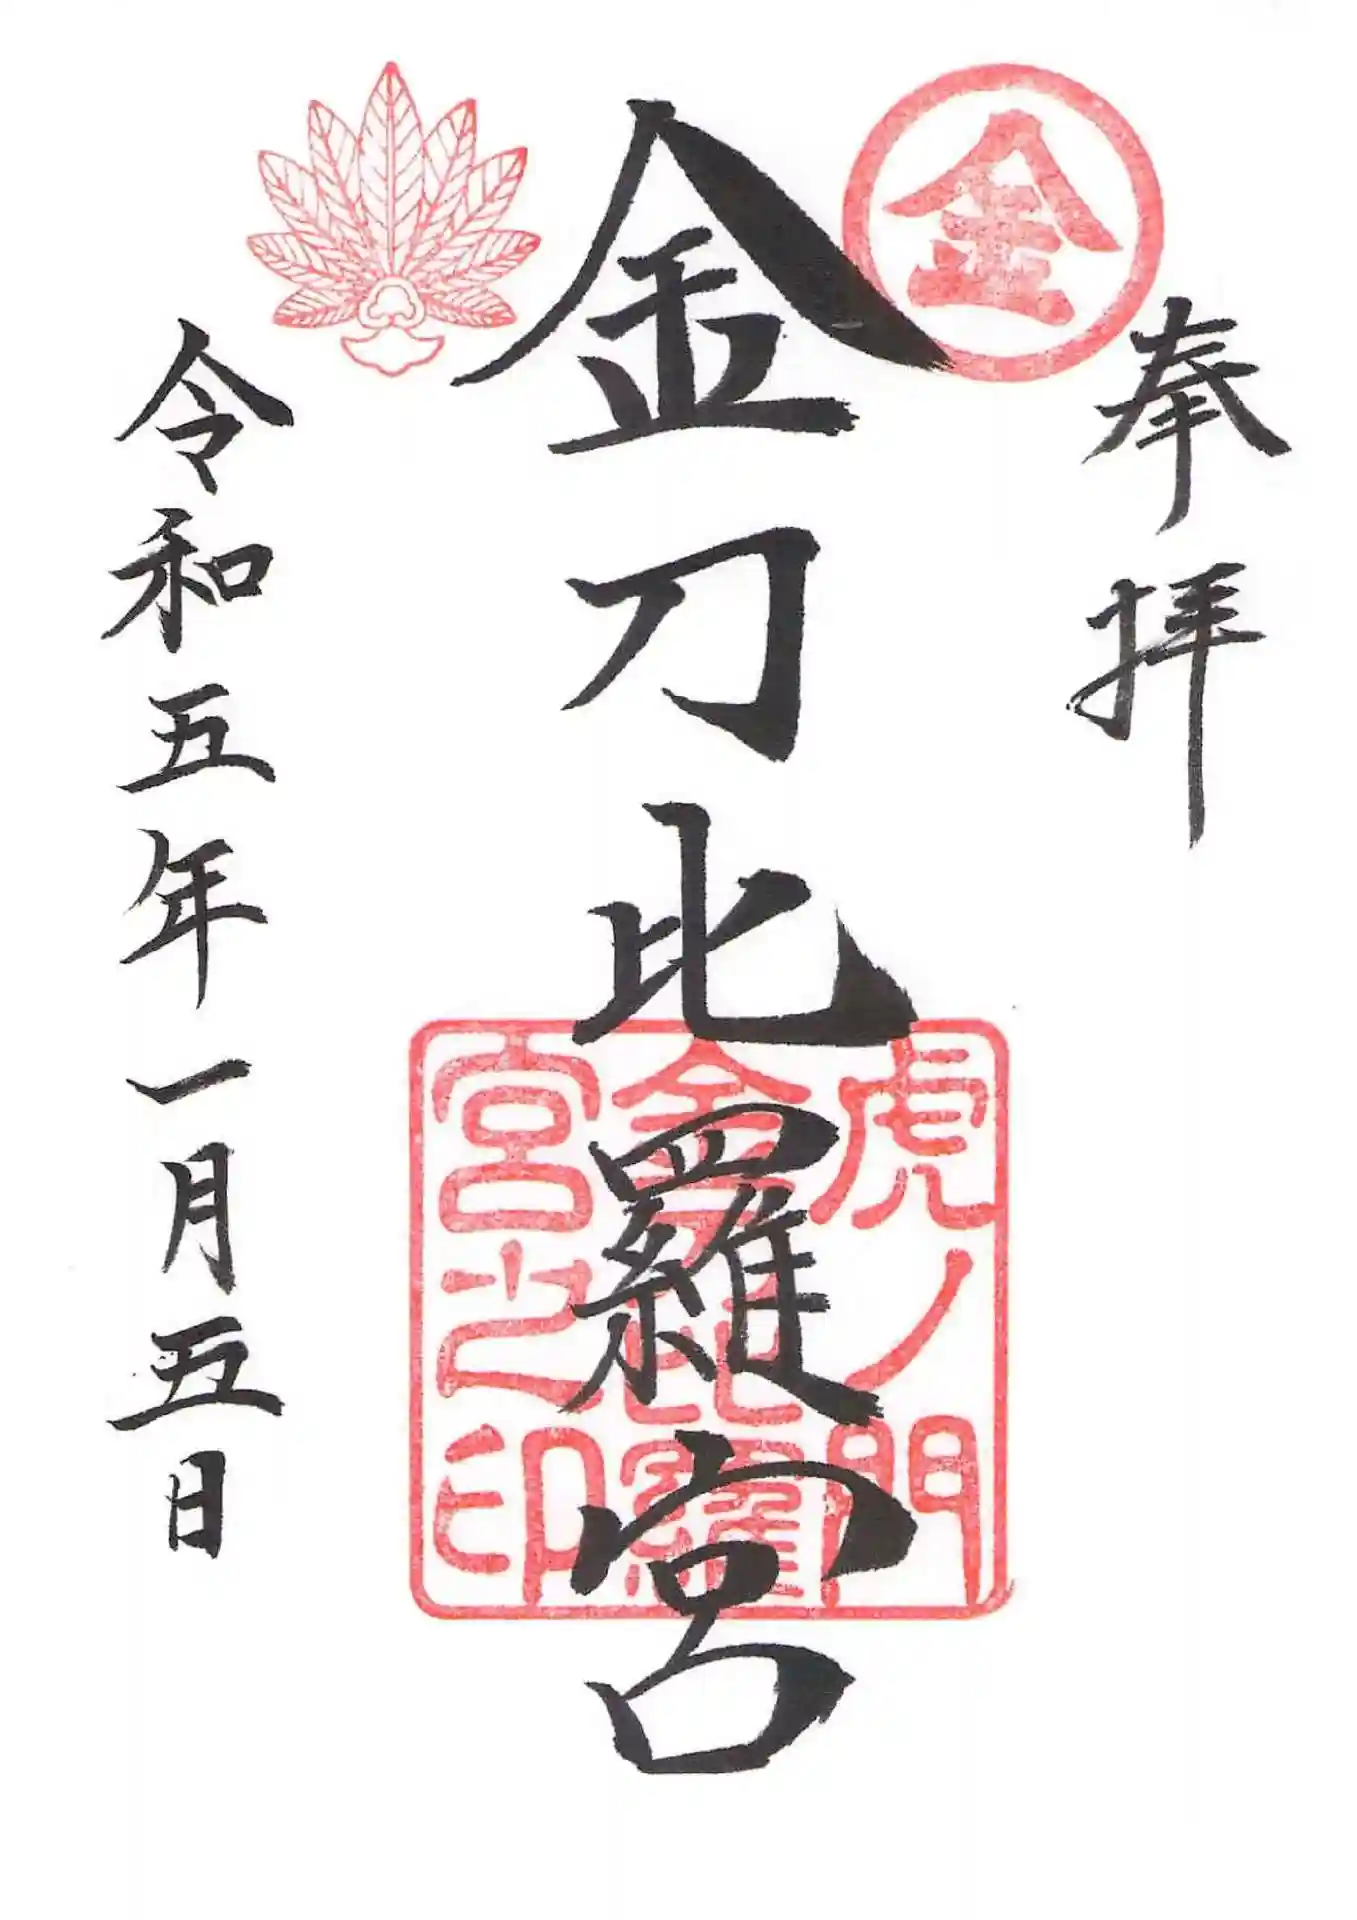 奉拝
金
金刀比羅宮
虎ノ門
金刀比羅
宮之印
令和五年一月五日